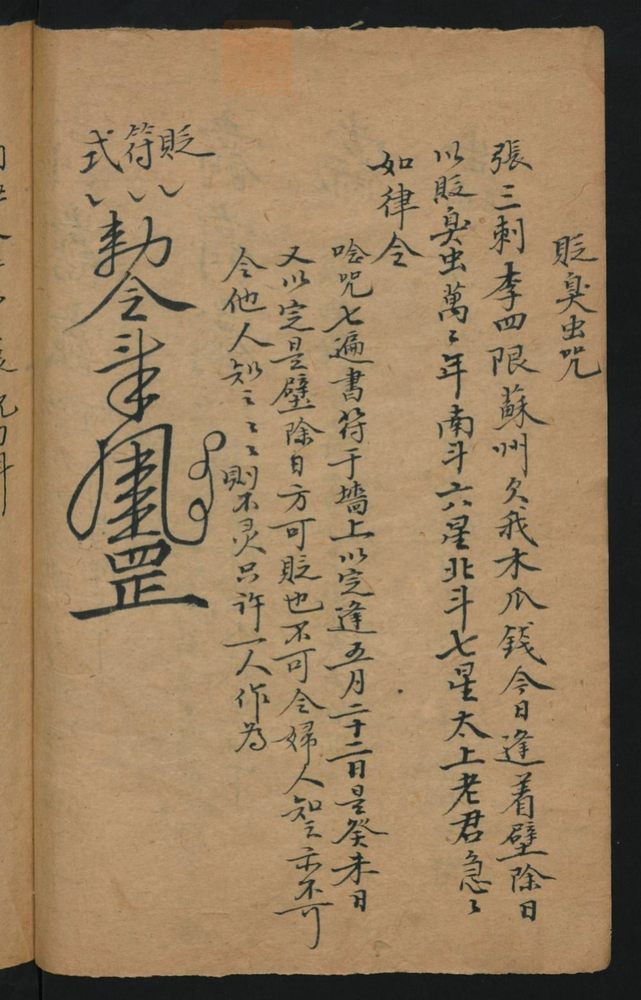 貶臭虫咒
張三刺李四限蘇州欠我木瓜錢今日逢着壁除日
以貶臭虫萬〻年南斗六星北斗七星太上老君急〻
如律令
唸咒七遍書符于墻上以完逢五月二十二日是癸未日
又以完是壁除日方可貶也不可令婦人知之亦不可
令他人知之〻〻則不灵只許一人作為
貶符式
勅令
罡